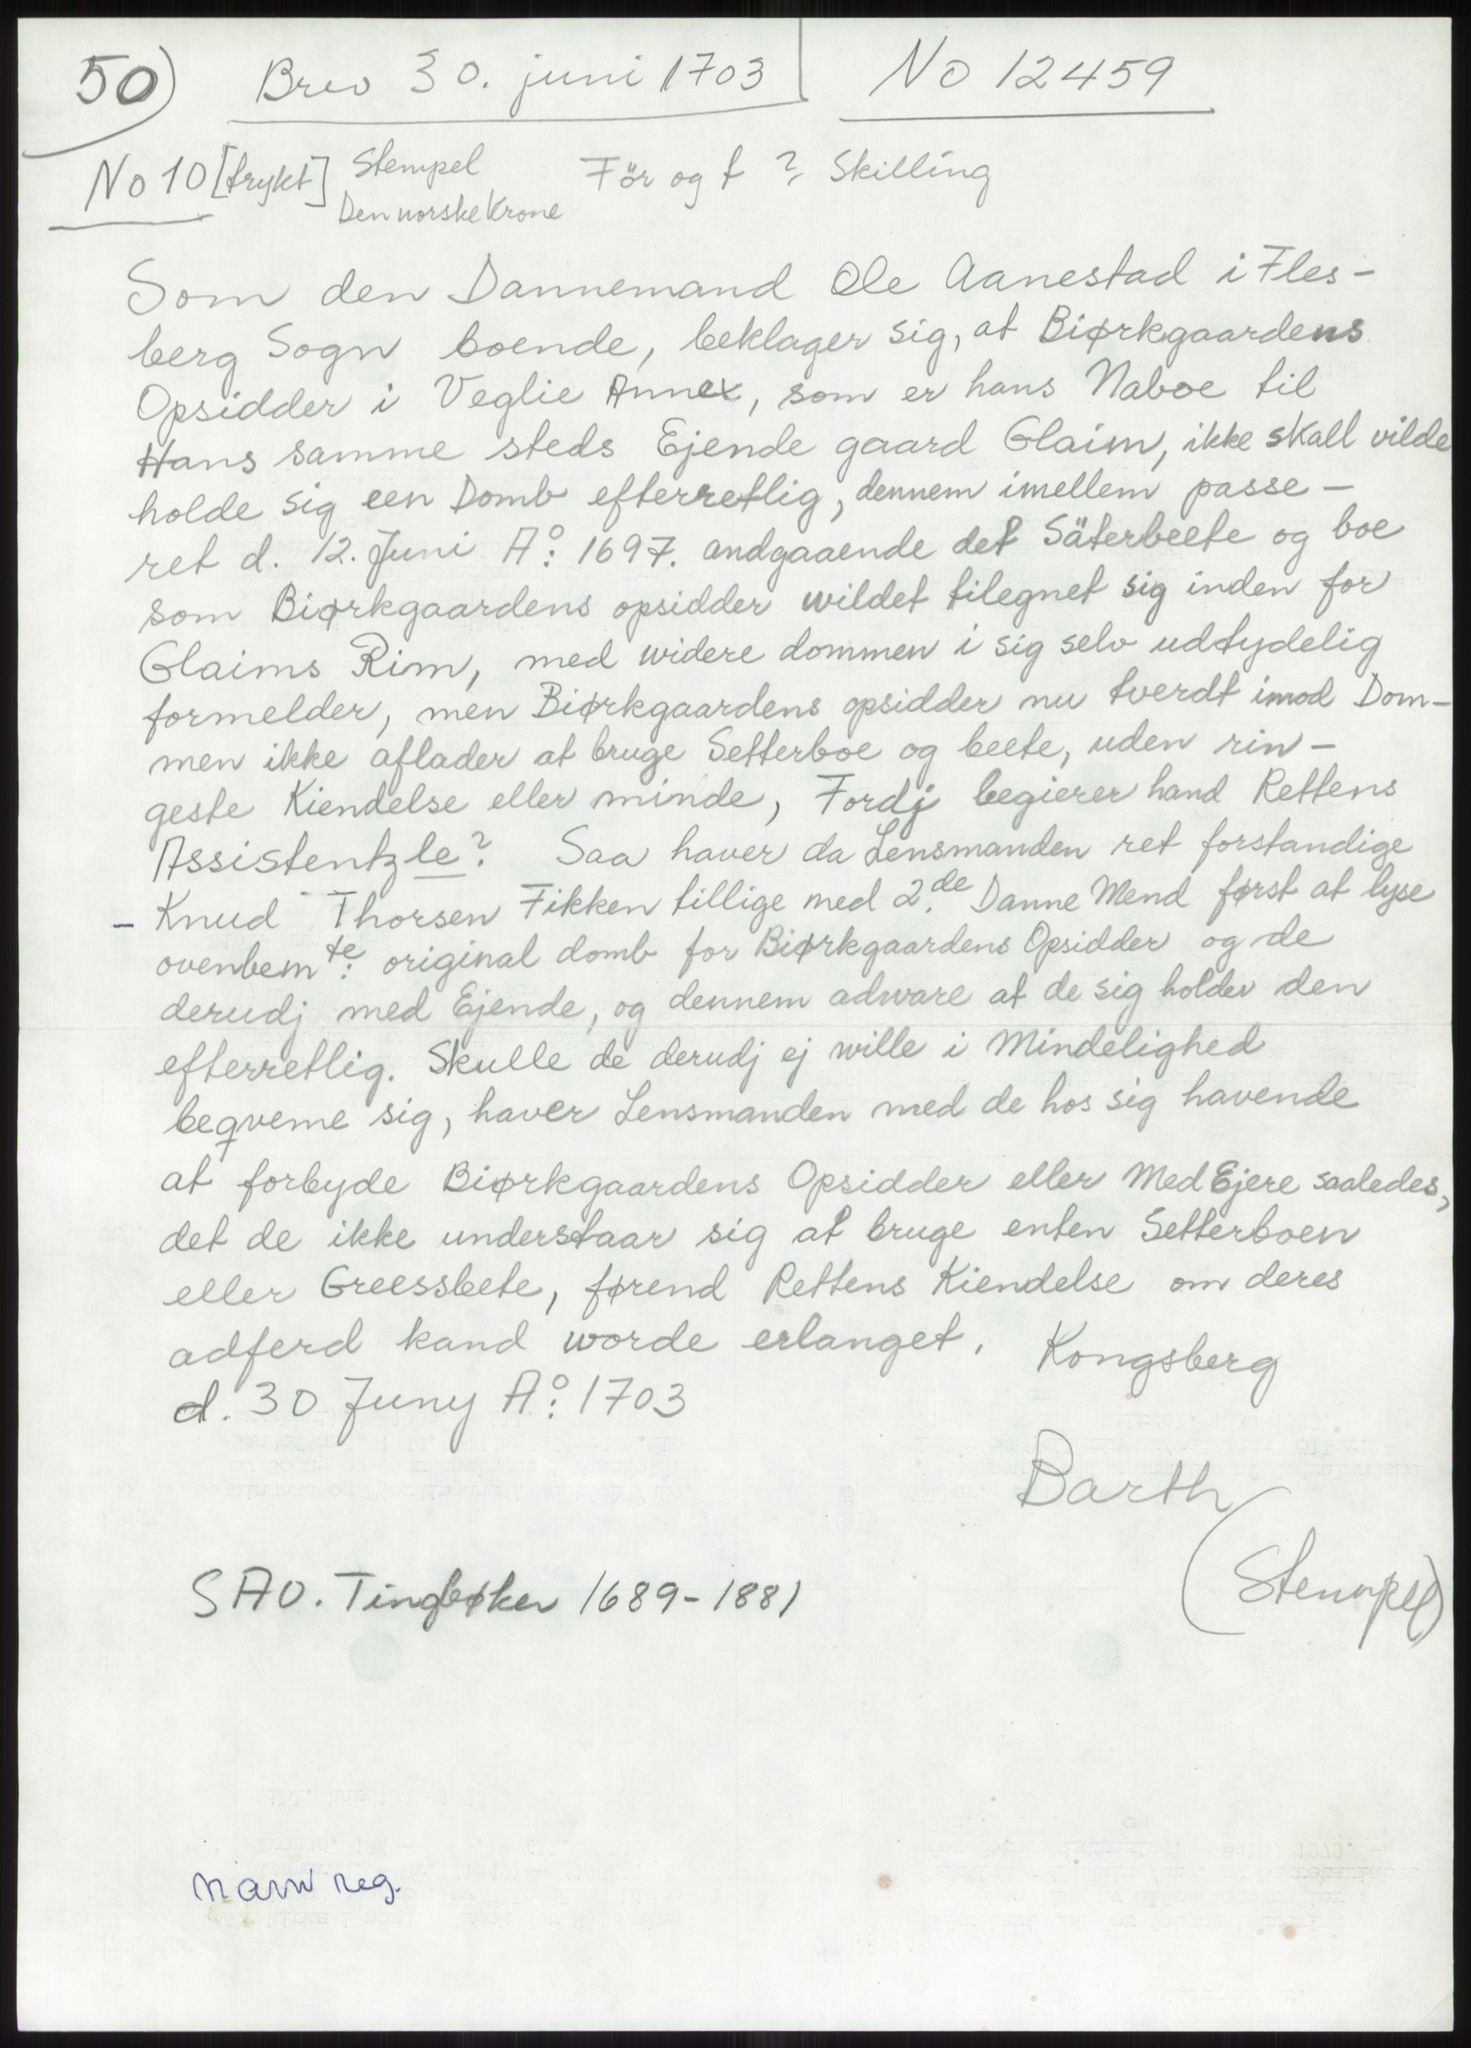 50) Brev 30. juni 1703 No 12459
No 10 [trykt] Stempel För og t ? Skilling
Den norske Krone
Som den Dannemand Ole Aanestad i Fles-
berg Sogn boende, beklager sig, at Biørkgaardens
Opsidder i Veglie Annex, som er hans Naboe til
Hans samme steds Ejende gaard Glaim, ikke skall vilde
holde sig een Domb efterretlig, dennem imellem passe-
ret d. 12. Juni A°: 1697. andgaaende det Säterbeete og boe
som Biørkgaardens opsidder wildet tilegnet sig inden for
Glaims Rim, med widere dommen i sig selv udtydelig
formelder, men Biørkgaardens opsidder nu tverdt imod Dom-
men ikke aflader at bruge Setterboe og beete, uden rin-
geste Kiendelse eller minde, Fordj begierer hand Rettens
Assistentzle? Saa haver da Lensmanden ret forstandige
- Knud Thorsen Fikken tillige med 2.de Danne Mend først at lyse
ovenbem te: original domb for Biørkgaardens Opsidder og de
derudj med Ejende, og dennem adware at de sig holder den
efterretlig. Skulle de derudj ej wille i Mindelighed
beqveme sig, haver Lensmanden med de hos sig havende
at forbyde Biørkgaardens Opsidder eller Med Ejere saaledes,
det de ikke understaar sig at bruge enten Setterboen
eller Greessbete, førend Rettens Kiendelse om deres
adferd kand worde erlanget. Kongsberg
d. 30 Juny A°: 1703
Barth
(Stempel)
SAO. Tingbøker 1689-1881
navn reg.